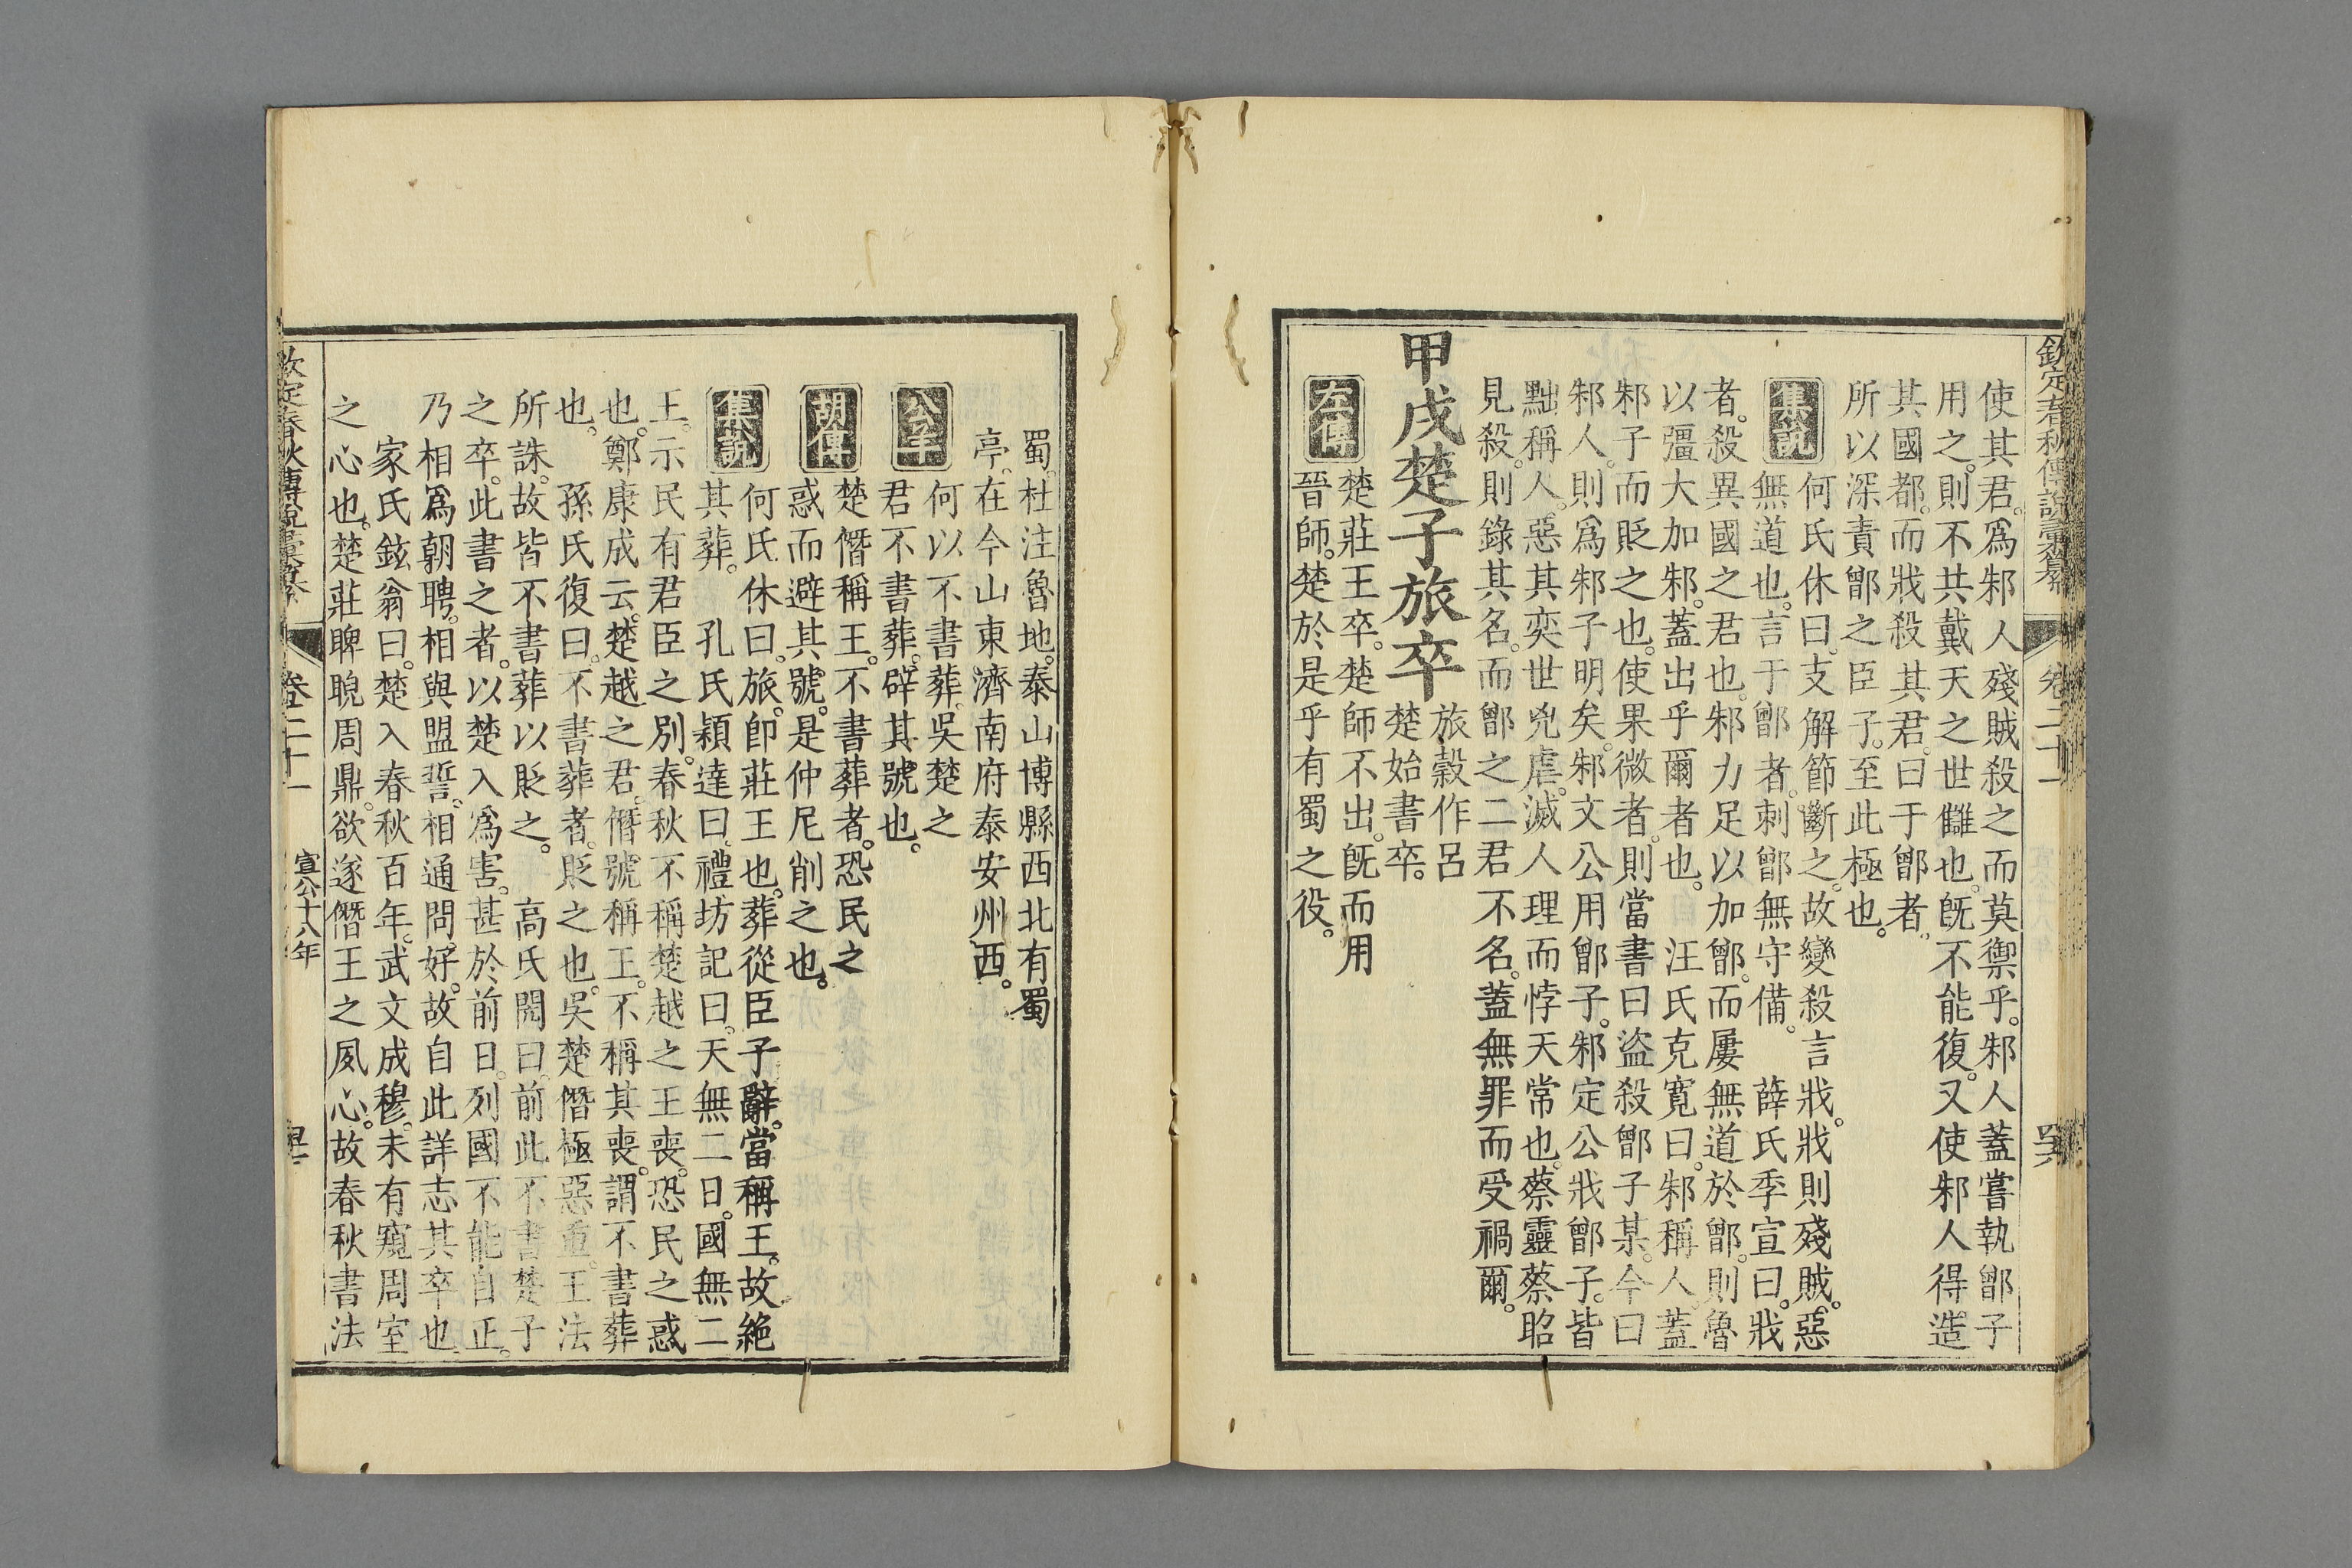 欽定春秋傳說彙纂 卷二十一
使其君爲邾人殘賊殺之而莫禦乎邾人蓋嘗執鄫子
用之則不共戴天之世讎也旣不能復又使邾人得造
其國都而戕殺其君曰于鄫者
所以深責鄫之臣子至此極也
集說 何氏休曰支解節斷之故變殺言戕戕則殘賊惡
無道也言于鄫者刺鄫無守備 薛氏季宣曰戕
者殺異國之君也邾力足以加鄫而屢無道於鄫則魯
以彊大加邾蓋出乎爾者也 汪氏克寛曰邾稱人蓋
邾子而貶之也使果微者則當書曰盜殺鄫子某今曰
邾人則爲邾子明矣邾文公用鄫子邾定公戕鄫子皆
黜稱人惡其奕世兇虐滅人理而悖天常也蔡靈蔡昭
見殺則錄其名而鄫之二君不名蓋無罪而受禍爾
甲戌楚子旅卒 旅穀作呂
楚始書卒
左傳 楚莊王卒楚師不出旣而用
晉師楚於是乎有蜀之役
蜀杜注魯地泰山博縣西北有蜀
亭在今山東濟南府泰安州西
公羊 何以不書葬吳楚之
君不書葬辟其號也
胡傳 楚僭稱王不書葬者恐民之
惑而避其號是仲尼削之也
集說 何氏休曰旅卽莊王也葬從臣子辭當稱王故絶
其葬 孔氏穎達曰禮坊記曰天無二日國無二
王示民有君臣之別春秋不稱楚越之王喪恐民之惑
也鄭康成云楚越之君僭號稱王不稱其喪謂不書葬
也 孫氏復曰不書葬者貶之也吳楚僭極惡重王法
所誅故皆不書葬以貶之 高氏閌曰前此不書楚子
之卒此書之者以楚入爲害甚於前日列國不能自正
乃相爲朝聘相與盟誓相通問好故自此詳志其卒也
家氏鉉翁曰楚入春秋百年武文成穆未有窺周室
之心也楚莊睥睨周鼎欲遂僭王之夙心故春秋書法
欽定春秋傳說彙纂 卷二十一 宣公十八年